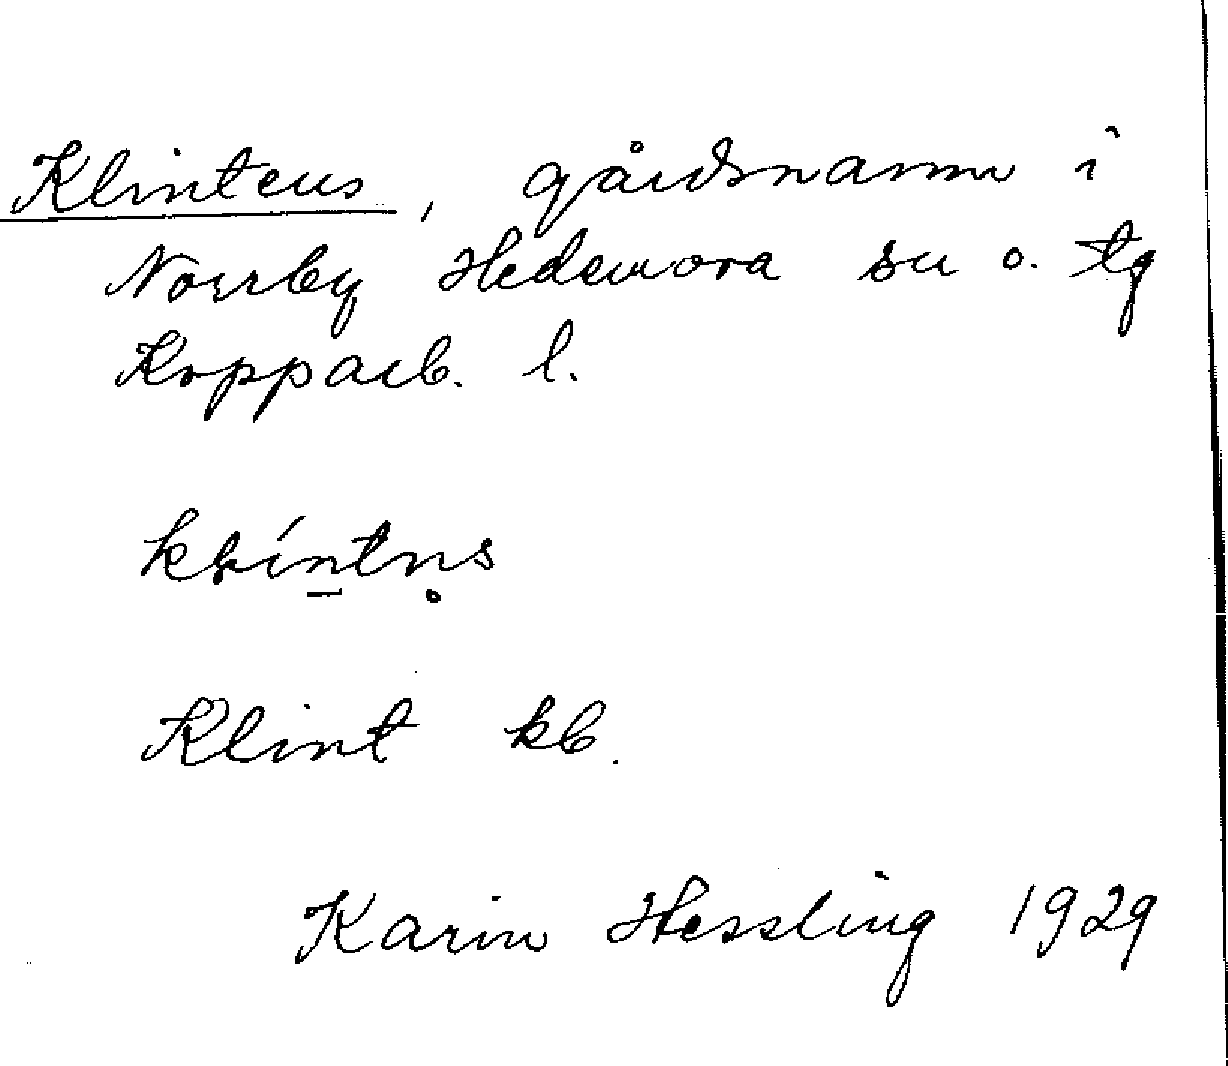 Klintens, gårdsnamn i
Norrby Hedemora sn o. tg
Kopparb. l.
kłín̲tn̥s
Klint kb.
Karin Hessling 1929